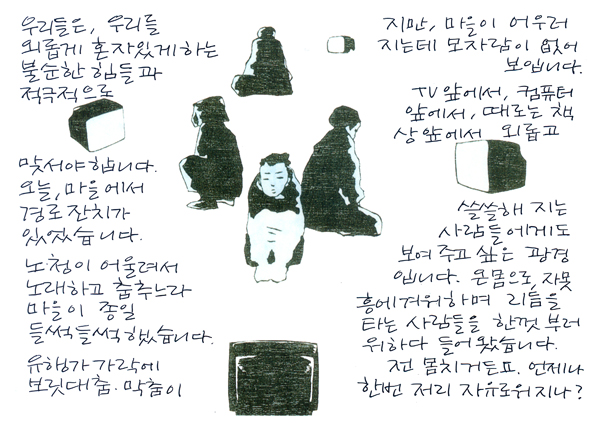 우리들은, 우리들
외롭게 혼자있게하는
불순한 힘들과
적극적으로
맞서야 합니다.
오늘, 마을에서
경로잔치가
있었습니다.
노·청이 어울려서
노래하고 춤추느라
마을이 종일
들썩들썩 했습니다.
유행가 가락에
보릿대춤. 막춤이
지만, 마을이 어우러
지는데 모자람이 없어
보입니다.
TV 앞에서, 컴퓨터
앞에서, 때로는 책
상 앞에서 외롭고
쓸쓸해 지는
사람들에게도
보여 주고 싶은 광경
입니다. 온몸으로, 자못
흥에겨워하며 리듬을
타는 사람들을 한껏 부러
워하다 들어 왔습니다.
전 몸치거든요. 언제나
한번 저리 자유로워지나?